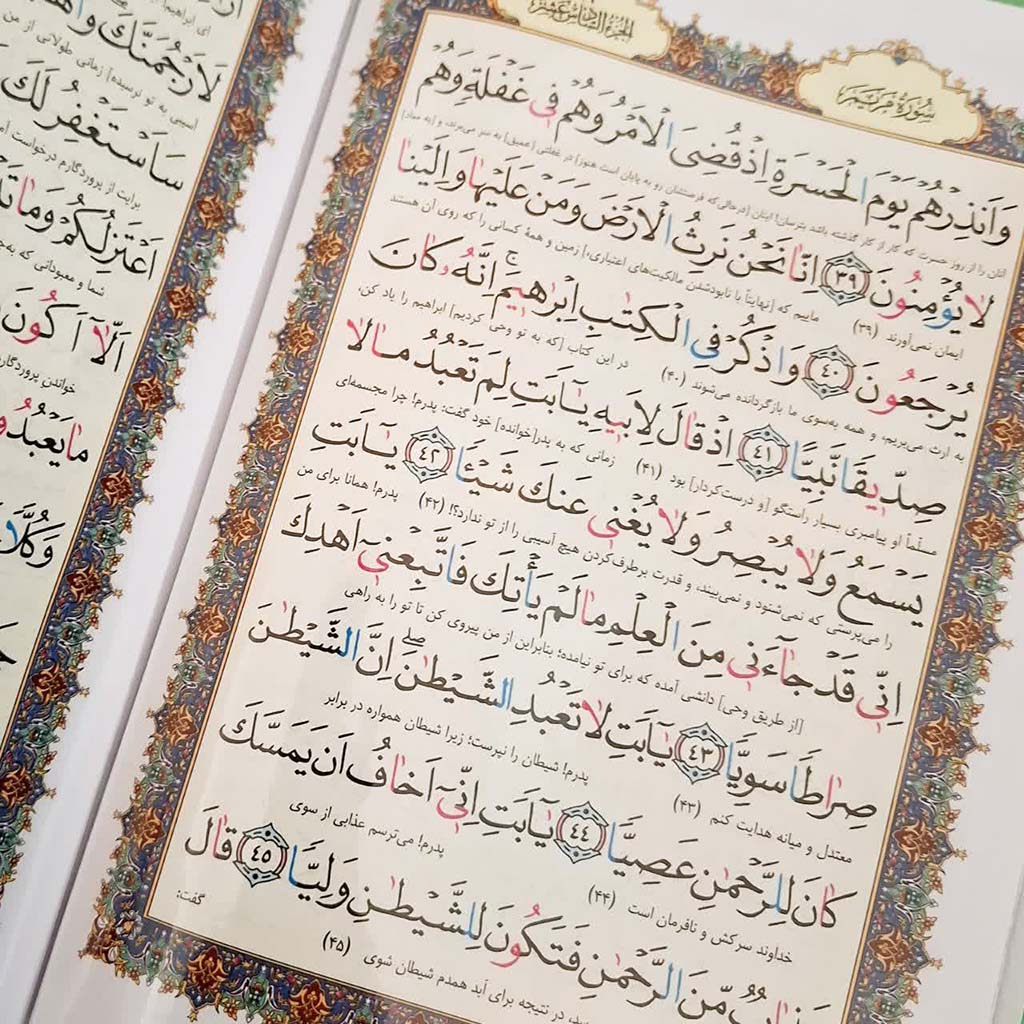 الجزء السادس عشر
سورة مريم
وَاَنْذِرْهُمْ يَوْمَ الْحَسْرَةِ اِذْ قُضِیَ الْاَمْرُ وَهُمْ فی غَفْلَةٍ وَهُمْ
آنان را از روز حسرت که کار از کار گذشته باشد بترسان! اینان [درحالی‌که فرصتشان رو به پایان است هنوز] در غفلتی [عمیق] به سر می‌برند، و [به معاد]
لا یُؤْمِنُونَ ﴿٣٩﴾ اِنّا نَحْنُ نَرِثُ الْاَرْضَ وَمَنْ عَلَیْها وَاِلَیْنا
ایمان نمی‌آورند (۳۹) ماییم که [نهایتاً با نابودشدن مالکیت‌های اعتباری،] زمین و همهٔ کسانی را که روی آن هستند
یُرْجَعُونَ ﴿٤٠﴾ وَاذْکُرْ فِی الْکِتٰبِ اِبْرٰهیمَ ۚ اِنَّهُ کانَ
به ارث می‌بریم، و همه به‌سوی ما بازگردانده می‌شوند (۴۰) در این کتاب [که به تو وحی کردیم] ابراهیم را یاد کن،
صِدّیقًا نَبِیًّا ﴿٤١﴾ اِذْ قالَ لِاَبیهِ یٰۤاَبَتِ لِمَ تَعْبُدُ ما لا
مسلّماً او پیامبری بسیار راستگو [و درست‌کردار] بود (۴۱) زمانی که به پدر[خوانده] خود گفت: پدرم! چرا مجسمه‌ای
یَسْمَعُ وَلا یُبْصِرُ وَلا یُغْنی عَنْكَ شَیْئًا ﴿٤٢﴾ یٰۤاَبَتِ
را می‌پرستی که نمی‌شنود و نمی‌بیند، و قدرت برطرف‌کردن هیچ آسیبی را از تو ندارد؟! (۴۲) پدرم! همانا برای من
اِنّی قَدْ جاۤءَنی مِنَ الْعِلْمِ ما لَمْ یَأْتِكَ فَاتَّبِعْنیۤ اَهْدِكَ
[از طریق وحی] دانشی آمده که برای تو نیامده؛ بنابراین از من پیروی کن تا تو را به راهی
صِراطًا سَوِیًّا ﴿٤٣﴾ یٰۤاَبَتِ لا تَعْبُدِ الشَّیْطٰنَ ۖ اِنَّ الشَّیْطٰنَ
معتدل و میانه هدایت کنم (۴۳) پدرم! شیطان را نپرست؛ زیرا شیطان همواره در برابر
کانَ لِلرَّحْمٰنِ عَصِیًّا ﴿٤٤﴾ یٰۤاَبَتِ اِنّیۤ اَخافُ اَنْ یَمَسَّكَ
خداوند سرکش و نافرمان است (۴۴) پدرم! می‌ترسم عذابی از سوی
عَذابٌ مِنَ الرَّحْمٰنِ فَتَکُونَ لِلشَّیْطٰنِ وَلِیًّا ﴿٤٥﴾ قالَ
در نتیجه برای ابد همدم شیطان شوی (۴۵) گفت:
ای ابراهیم
لَاَرْجُمَنَّكَ وَاهْ
آسیبی به تو نرسیده] زمانی طولانی از من
سَاَسْتَغْفِرُ لَكَ
برایت از پروردگارم درخواست
اَعْتَزِلُکُمْ وَما تَدْ
شما و معبودانی که به‌
اَلّاۤ اَکُونَ
خواندن پروردگار
ما یَعْبُدُو
وَکُلًّا